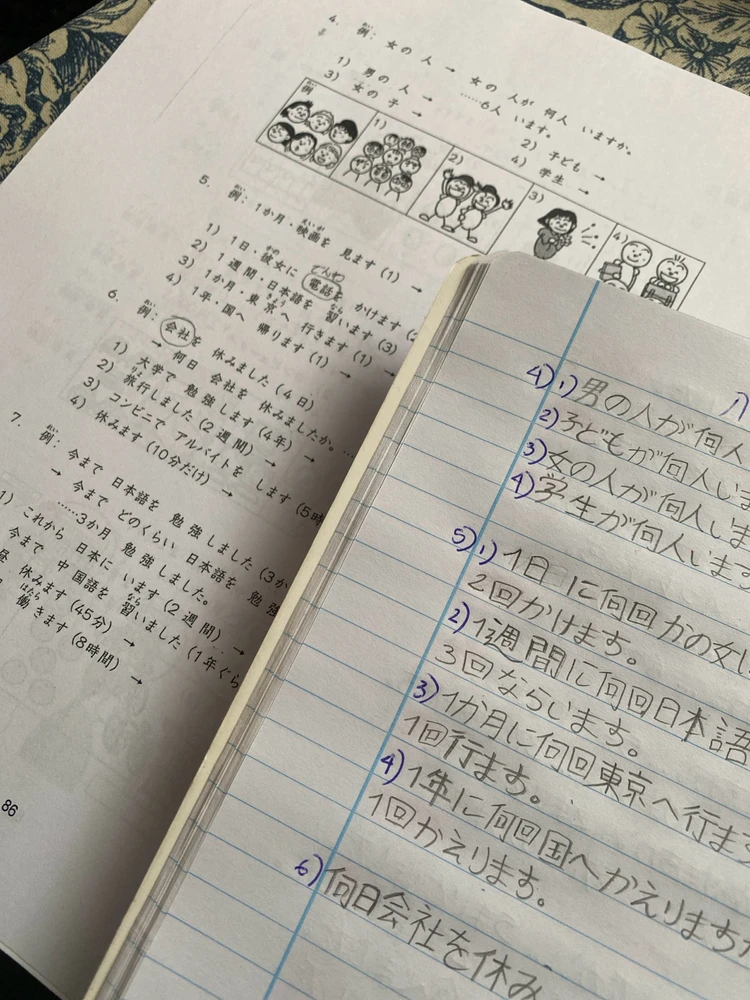 4.
例：女の 人 → 女の 人が 何人 いますか。
……6人 います。
1) 男の 人 →
2) 子ども →
3) 女の 子 →
4) 学生 →
例
1)
2)
3)
4)
5.
例：1か月・映画を 見ます (1) →
1) 1日・彼女に 電話を かけます
でんわ
2) 1週間・日本語を 習います (3)
3) 1か月・東京へ 行きます (1) →
4) 1年・国へ 帰ります (1) →
6.
例：会社を 休みました (4日)
→ 何日 会社を 休みましたか。
1) 大学で 勉強します (4年) →
2) 旅行しました (2週間) →
3) コンビニで アルバイトを します (5時
4) 休みます (10分だけ) →
7.
例：今まで 日本語を 勉強しました (3か
→ 今まで どのくらい 日本語を 勉強
……3か月 勉強しました。
1) これから 日本に います (2週間) →
今まで 中国語を 習いました (1年ぐら
休みます (45分) →
働きます (8時間) →
86
4) 1) 男の人が何人
2) 子どもが何人い
3) 女の人が何人いま
4) 学生が何人います
5) 1) 1日に何回かの女
2回かけます。
2) 1週間に何回日本語
3回ならいます。
3) 1か月に何回東京へ行ます
1回行ます。
4) 1年に何回国へかえりますか
1回かえります。
6) 何日会社を休み